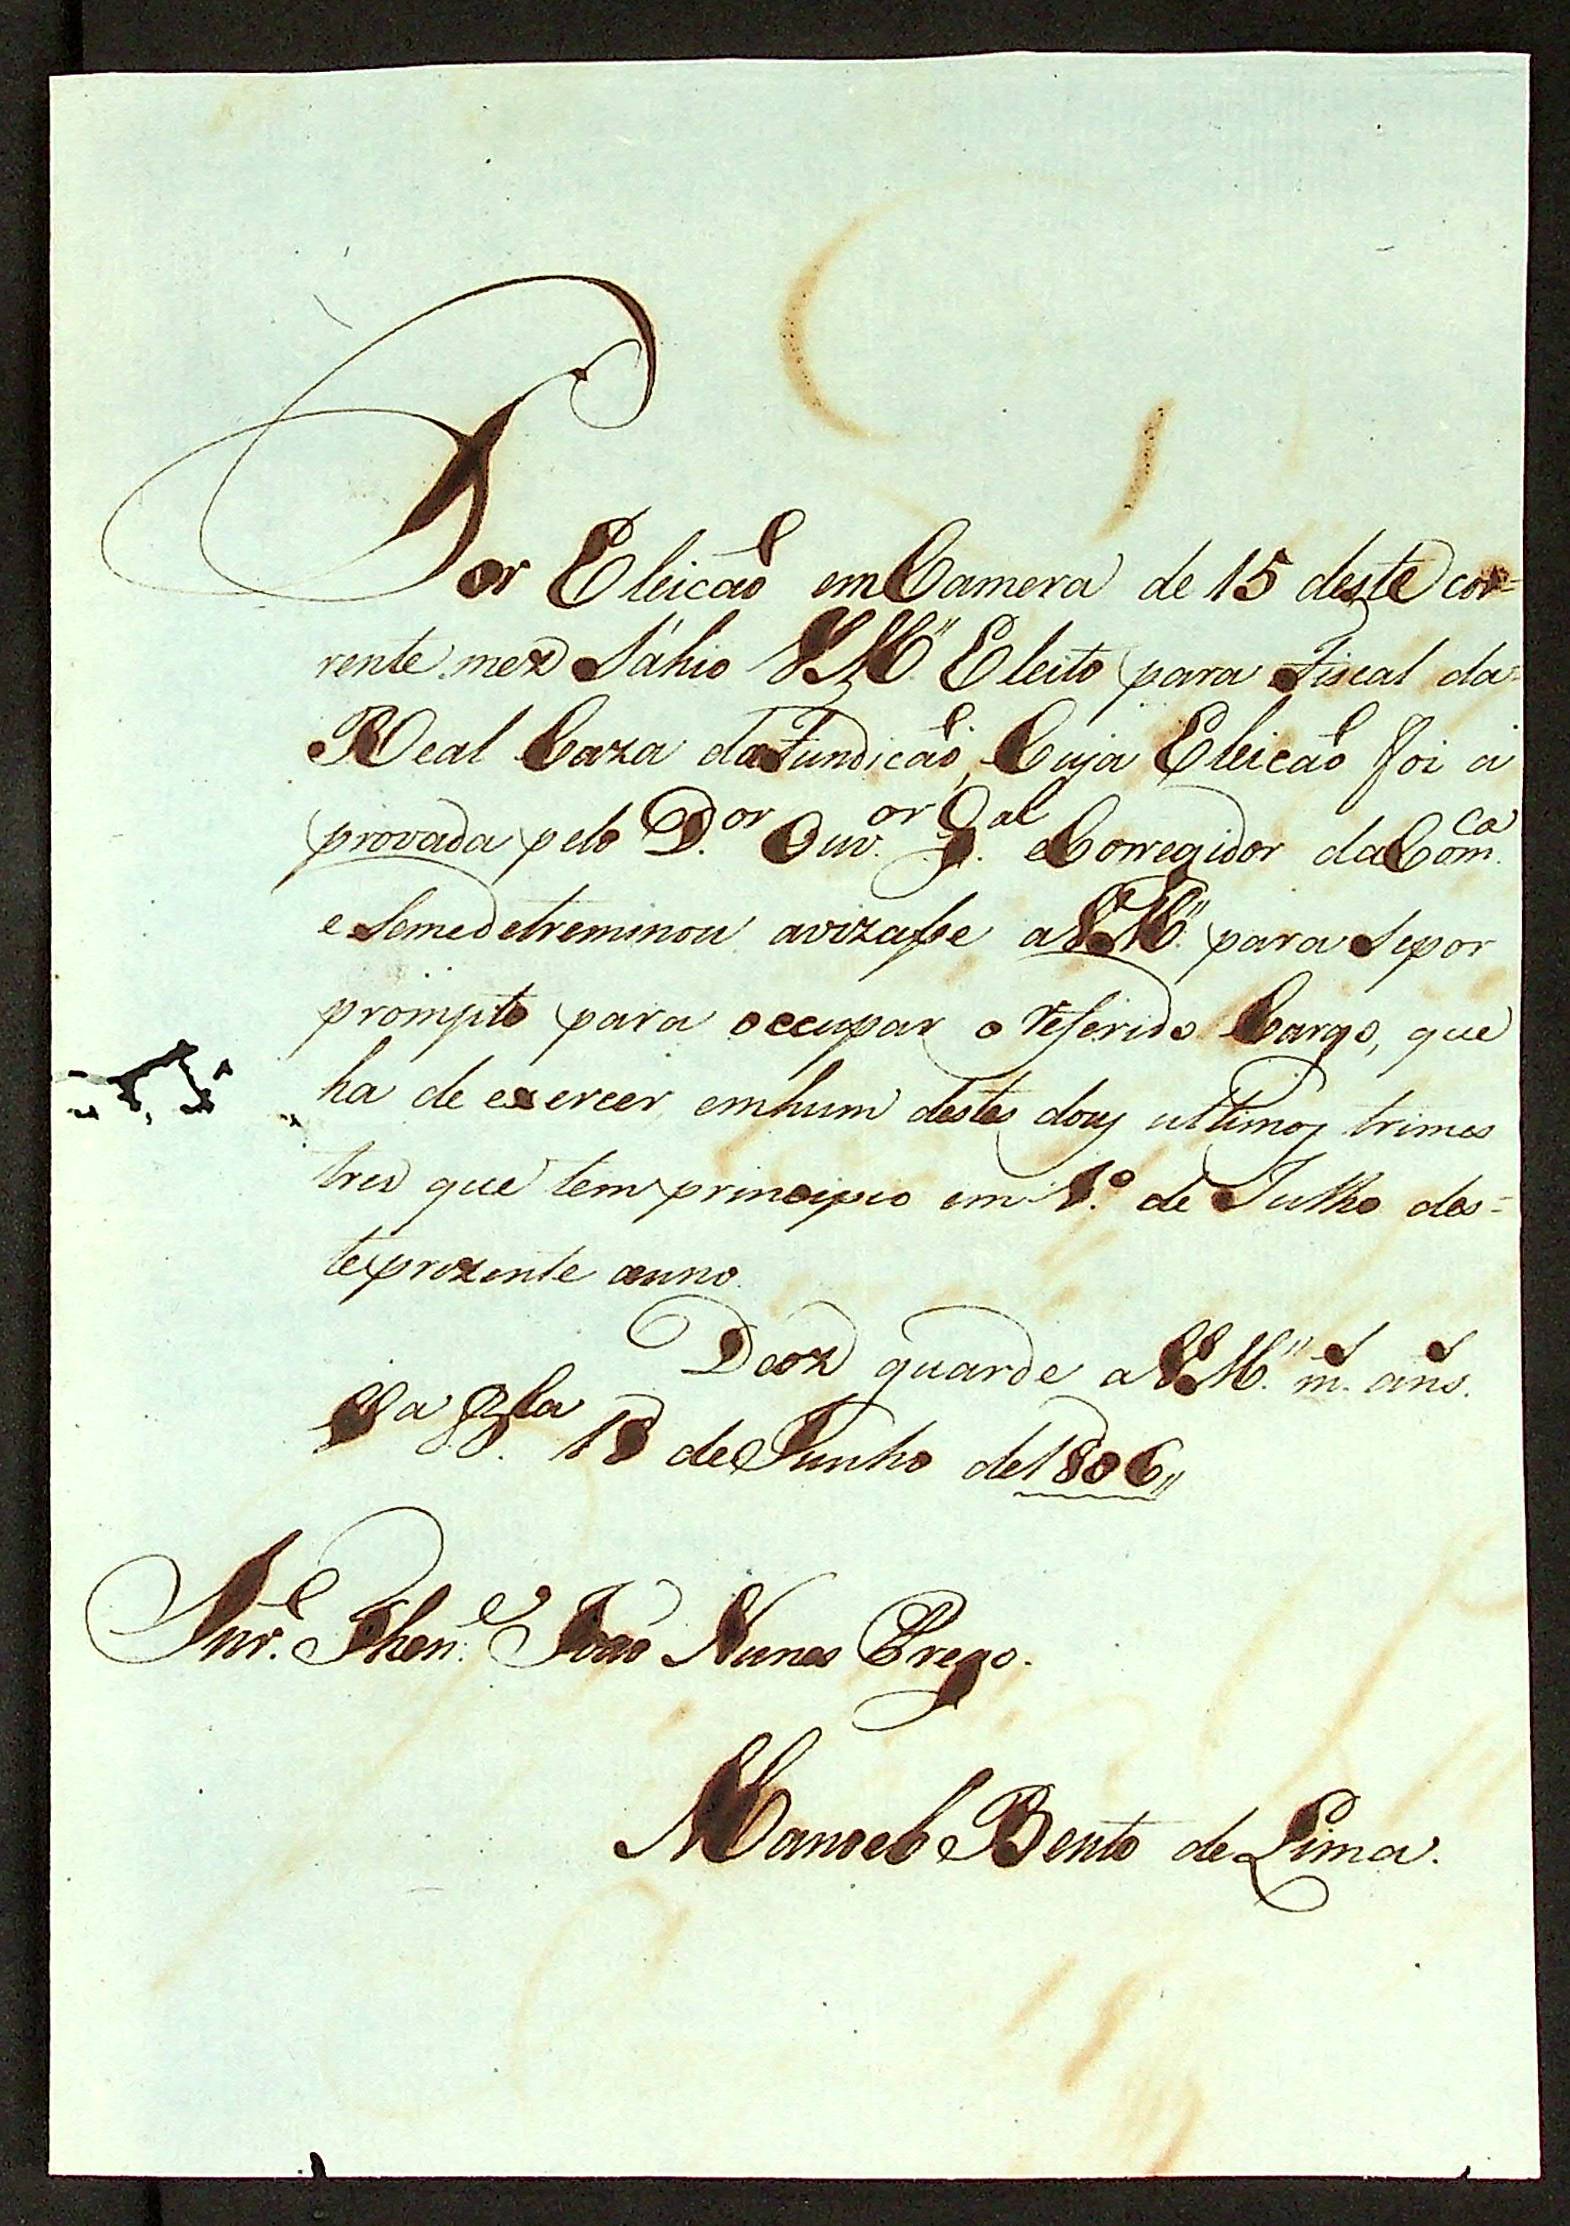 Por Eleicaõ em Camera de 15 deste cor=
rente mez Sáhio VM.ce Eleito para Fiscal da
Real Caza da Fundicaõ, Cuja Eleicaõ foi á
provada pelo D.or Ouv.or G.al e Corregidor da Com.ca
e Semedetreminou avizasse a VM.ce para Sepor
prompto para occupar o referido Cargo, que
ha de exercer emhum destes dous ultimos trimes
tres que tem principio em 1.º de Julho des=
teprezente anno.
Deos guarde a VM.ce m.s an̄s.
V.a B.la 18 de Junho de 1806
Snr. Then.e Joaõ Nunes Prego.
Manoel Bento de Lima.